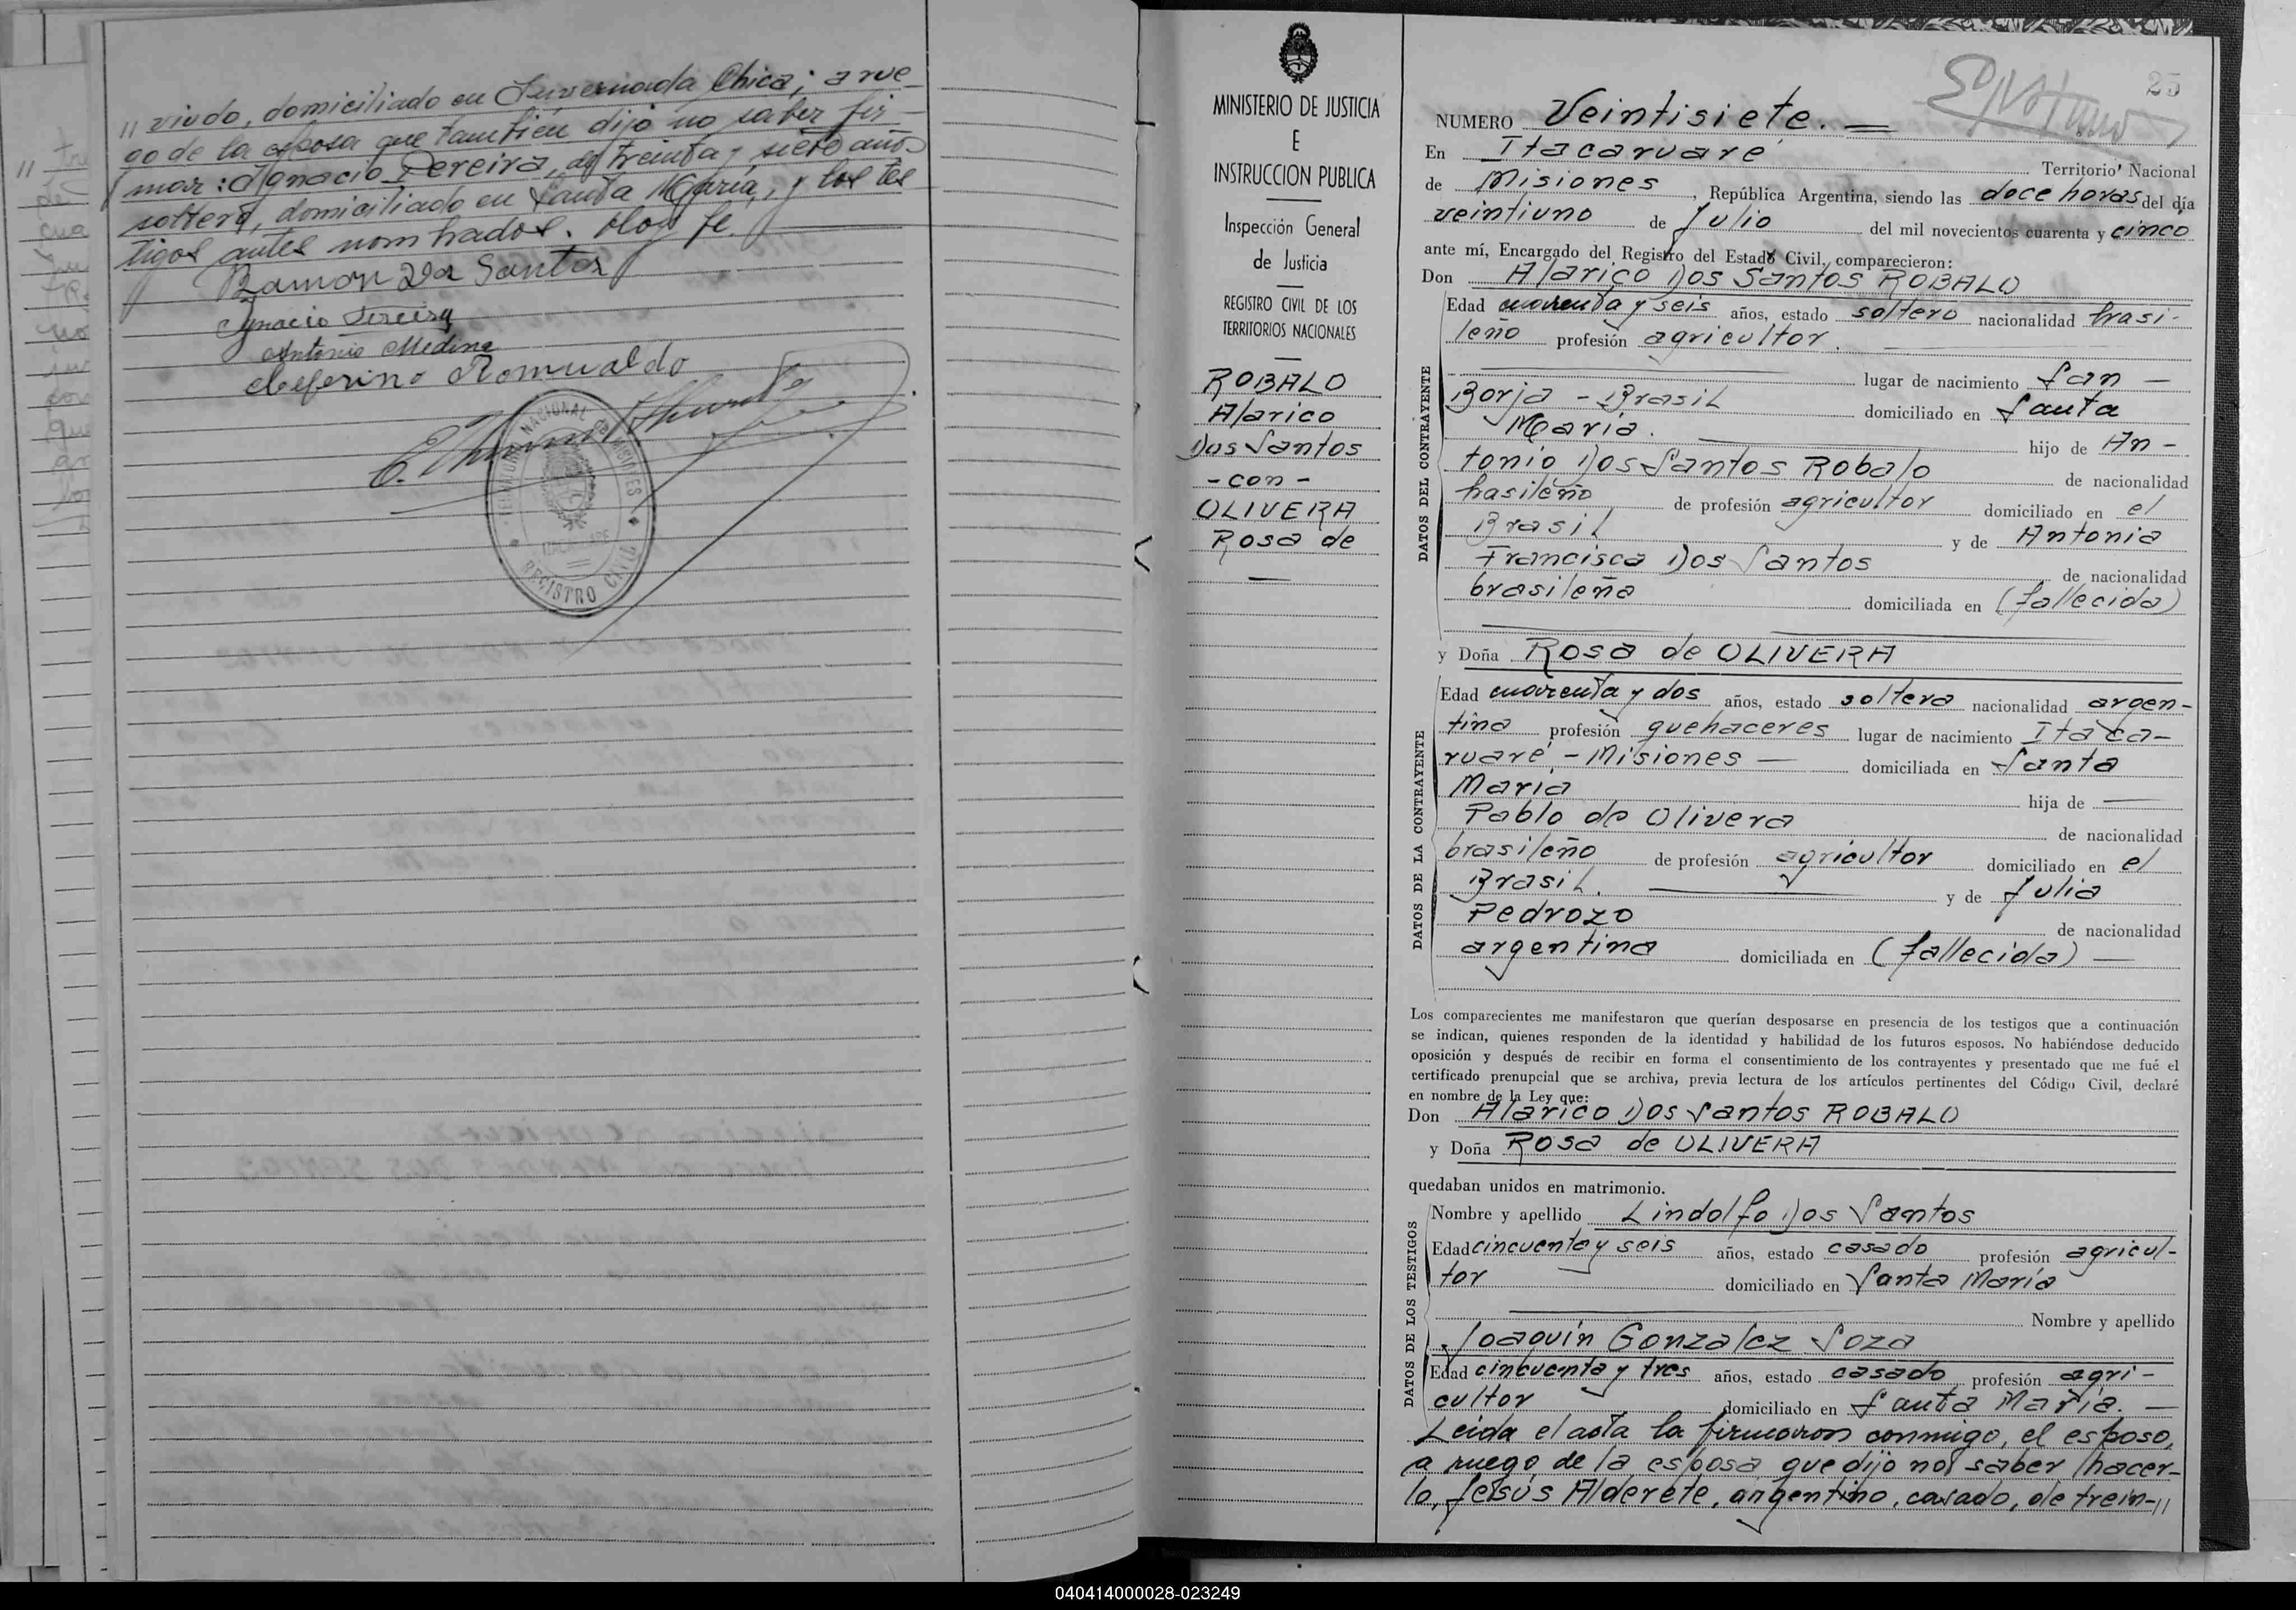 // viudo, domiciliado en Invernada Chica; a rue-
go de la esposa que también dijo no saber fir-
mar: Ignacio Pereira, de treinta y siete años
soltero, domiciliado en Santa María, y los tes
tigos antes nombrados. Doy fe.
Ramon Dos Santos
Ignacio Pereira
Antonio Medina
Ceferino Romualdo
REGISTRO CIVIL
MINISTERIO DE JUSTICIA
E
INSTRUCCION PUBLICA
Inspección General
de Justicia
REGISTRO CIVIL DE LOS
TERRITORIOS NACIONALES
ROBALO
Alarico
Dos Santos
- con -
OLIVERA
Rosa de
25
NUMERO Veintisiete.
En Itacaruaré Territorio Nacional
de Misiones, República Argentina, siendo las doce horas del día
veintiuno de Julio del mil novecientos cuarenta y cinco
ante mí, Encargado del Registro del Estado Civil, comparecieron:
Don Alarico Dos Santos ROBALO
DATOS DEL CONTRAYENTE
Edad cuarenta y seis años, estado soltero nacionalidad brasi-
leño profesión agricultor.
lugar de nacimiento San —
Borja - Brasil domiciliado en Santa
María. hijo de An-
tonio Dos Santos Robalo de nacionalidad
brasileño de profesión agricultor domiciliado en el
Brasil y de Antonia
Francisca Dos Santos de nacionalidad
brasileña domiciliada en (fallecida)
y Doña Rosa de OLIVERA
DATOS DE LA CONTRAYENTE
Edad cuarenta y dos años, estado soltera nacionalidad argen-
tina profesión quehaceres lugar de nacimiento Itaca-
ruaré - Misiones — domiciliada en Santa
María hija de —
Pablo de Olivera de nacionalidad
brasileño de profesión agricultor domiciliado en el
Brasil. y de Julia
Pedrozo de nacionalidad
argentina domiciliada en (fallecida) —
Los comparecientes me manifestaron que querían desposarse en presencia de los testigos que a continuación
se indican, quienes responden de la identidad y habilidad de los futuros esposos. No habiéndose deducido
oposición y después de recibir en forma el consentimiento de los contrayentes y presentado que me fué el
certificado prenupcial que se archiva, previa lectura de los artículos pertinentes del Código Civil, declaré
en nombre de la Ley que:
Don Alarico Dos Santos ROBALO
y Doña Rosa de OLIVERA
quedaban unidos en matrimonio.
DATOS DE LOS TESTIGOS
Nombre y apellido Lindolfo Dos Santos
Edad cincuenta y seis años, estado casado profesión agricul-
tor domiciliado en Santa María
Nombre y apellido
Joaquín Gonzalez Soza
Edad cincuenta y tres años, estado casado profesión agri-
cultor domiciliado en Santa María. —
Leída el acta la firmaron conmigo, el esposo,
a ruego de la esposa que dijo no saber hacer-
lo, Jesús Alderete, argentino, casado, de trein-//
040414000028-023249